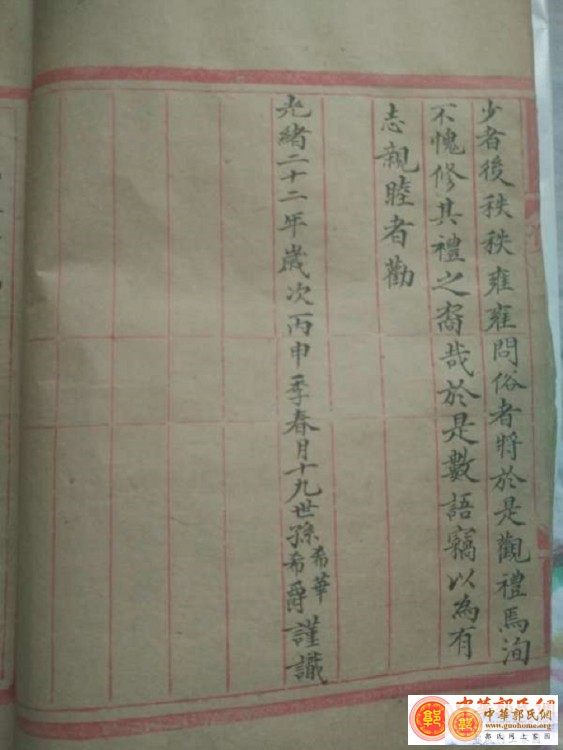 少者後秩秩雍雍問俗者將於是觀禮焉洵
不愧修其禮之裔哉於是數語竊以為有
志親睦者勸
光緒二十二年歲次丙申季春月十九世孫希華希爵謹識
郭
中華郭氏網
www.guohome.org
郭氏網上家園